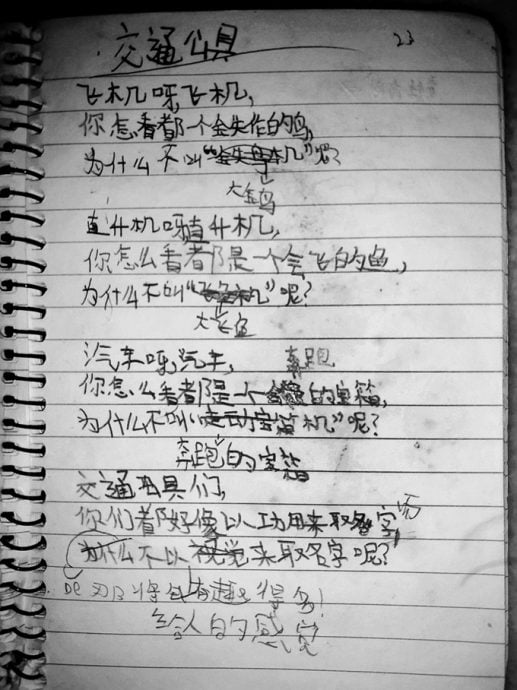 交通公具
23
飞机呀飞机,
你怎看都一个金失作的鸟,
为什么不叫“金失鸟机”呢?
大金鸟
直升机呀直升机,
你怎么看都是一个会飞的鱼,
为什么不叫“飞鱼机”呢?
大飞鱼
汽车呀,汽车,
奔跑
你怎么看都是一个的宝箱,
为什么不叫“走动宝箱机”呢?
奔跑的宝箱
交通工具们,
你们都好像以功用来取名字
为什么不以视觉来取名字呢?
给人的感觉